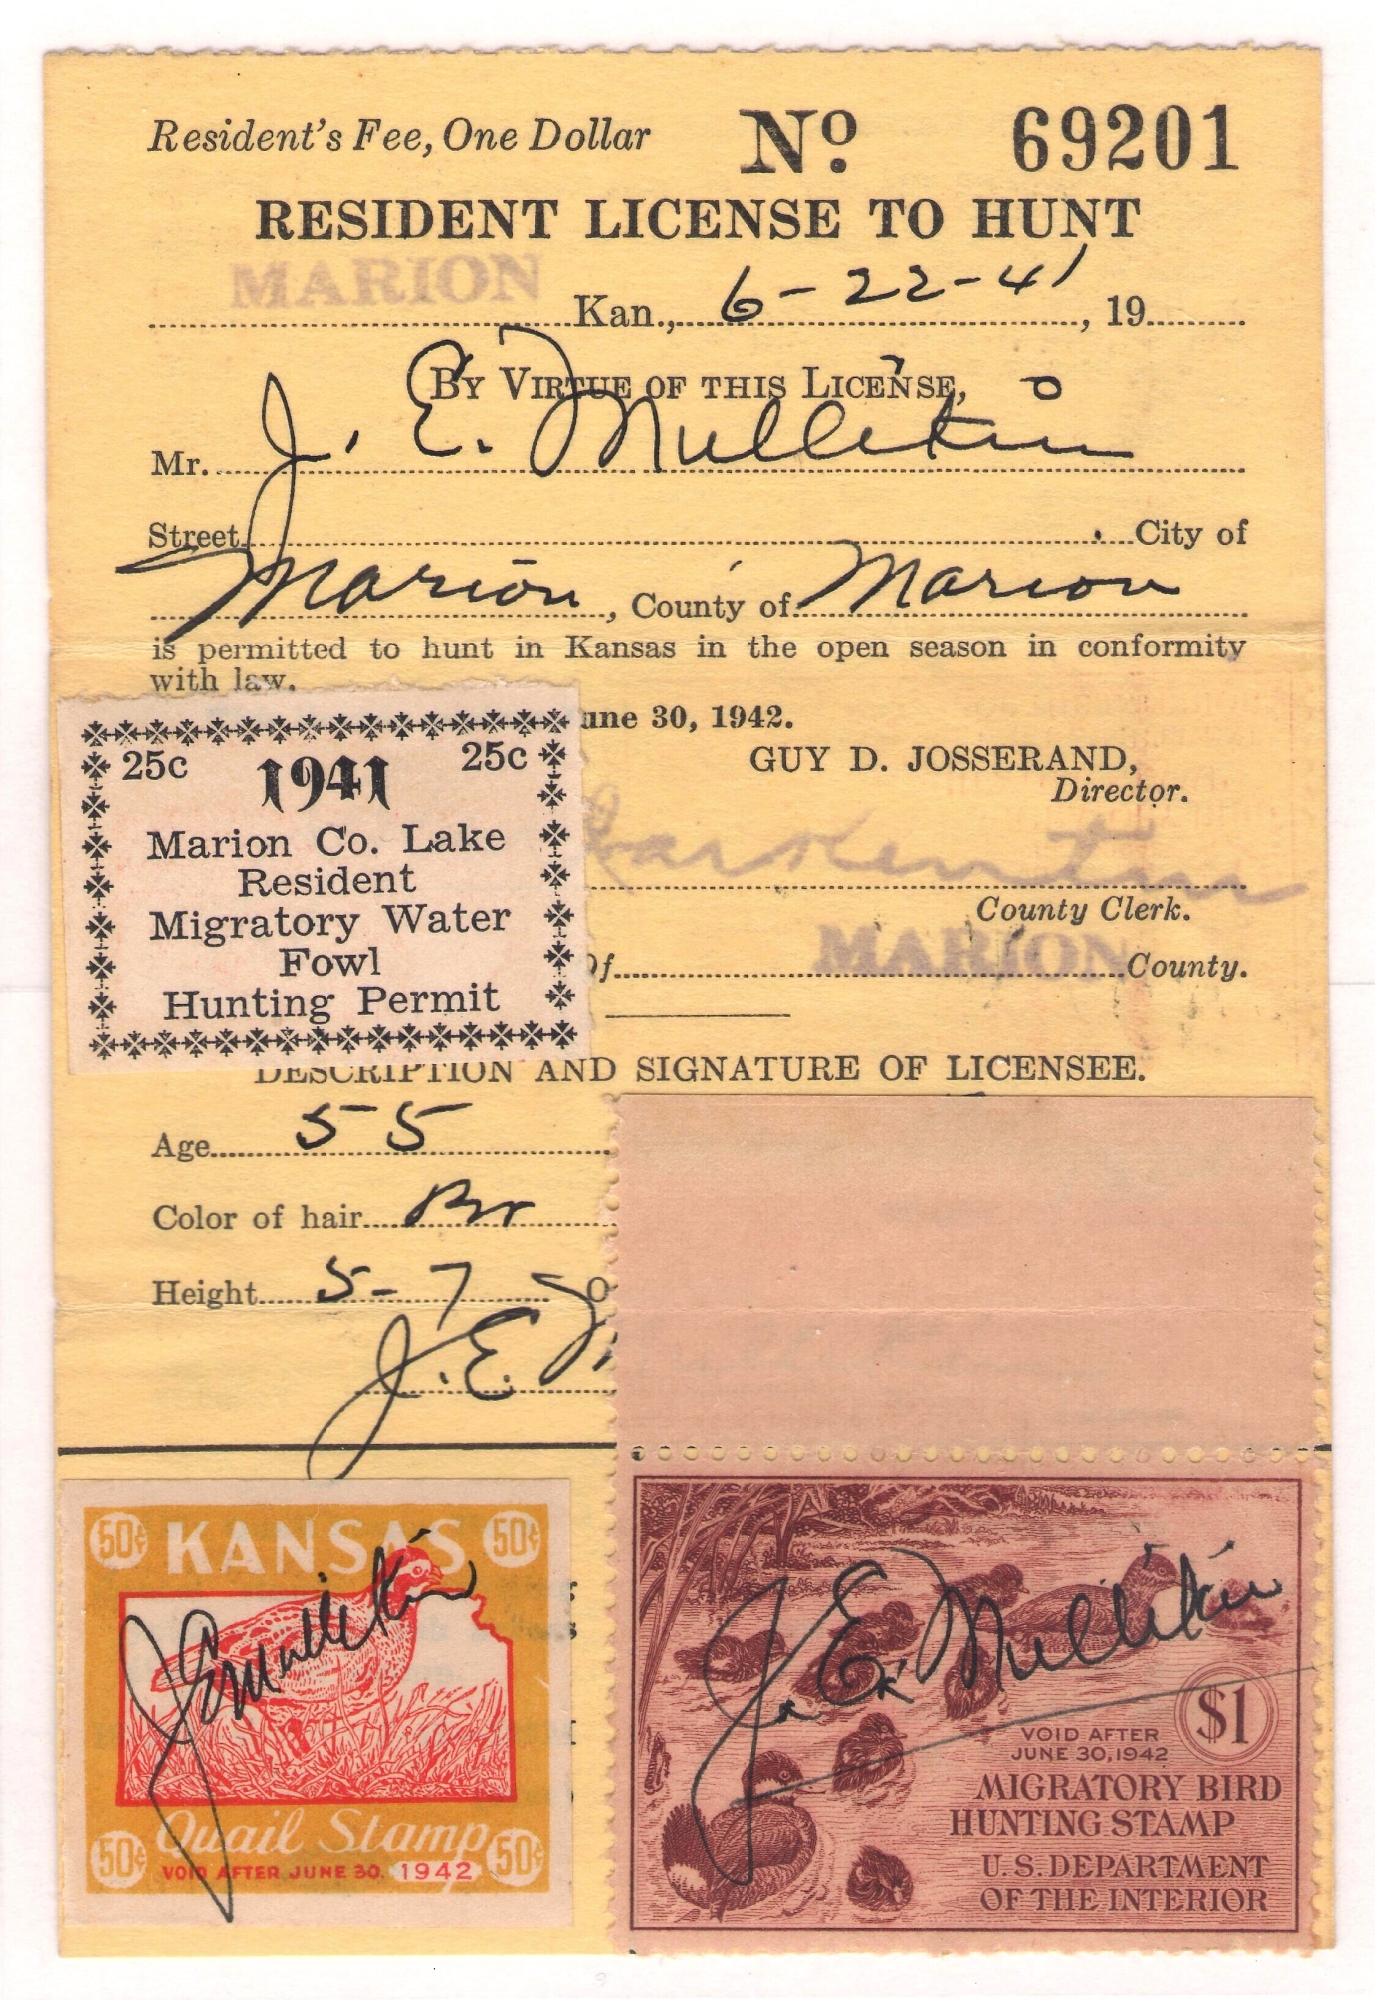 Resident's Fee, One Dollar Nº 69201
RESIDENT LICENSE TO HUNT
MARION Kan., 6-22-41, 19
BY VIRTUE OF THIS LICENSE,
Mr. J. E. Mullikin
Street City of
Marion, County of Marion
is permitted to hunt in Kansas in the open season in conformity
with law.
une 30, 1942.
GUY D. JOSSERAND,
Director.
County Clerk.
Of MARION County.
25c 1941 25c
Marion Co. Lake
Resident
Migratory Water
Fowl
Hunting Permit
DESCRIPTION AND SIGNATURE OF LICENSEE.
Age 55
Color of hair Br
Height 5-7 O
J. E. M
50¢ KANSAS 50¢
J E Mullikin
50¢ Quail Stamp 50¢
VOID AFTER JUNE 30, 1942
J. E. Mullikin
$1
VOID AFTER
JUNE 30, 1942
MIGRATORY BIRD
HUNTING STAMP
U.S. DEPARTMENT
OF THE INTERIOR